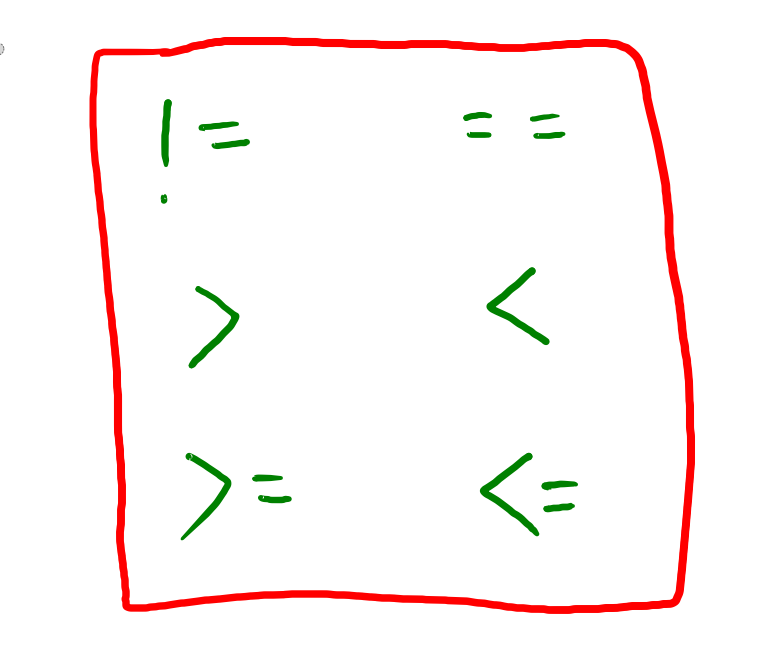 != ==
> <
>= <=